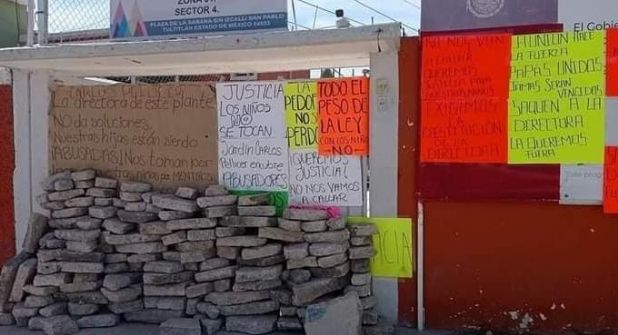 ZONA 57
SECTOR 4.
PLAZA DE LA SABANA S/N IZCALLI SAN PABLO
TULTITLAN ESTADO DE MÉXICO
El Gobi
La directora de este plante
NO da soluciones,
Nuestras hijas están siendo
¡ABUSADAS! Nos toman por
JUSTICIA
LOS NIÑOS
NO
SE TOCAN
Jardín Carlos
Pellicer encubre
ABUSADORES
LA
PEDOF
NO SE
PERDO
TODO EL
PESO DE
LA LEY
CON LOS NIÑO
-NO-
¡QUEREMOS
JUSTICIA!
NO NOS VAMOS
A CALLAR
CIA
QUEREMOS
EXIGAMOS
LA
DESTITUCIÓN
DE LA
DIRECTORA
LA UNION HACE
LA FUERZA
PAPÁS UNIDOS
JAMAS SERAN
VENCIDAS
SAQUEN A LA
DIRECTORA
LA QUEREMOS
FUERA